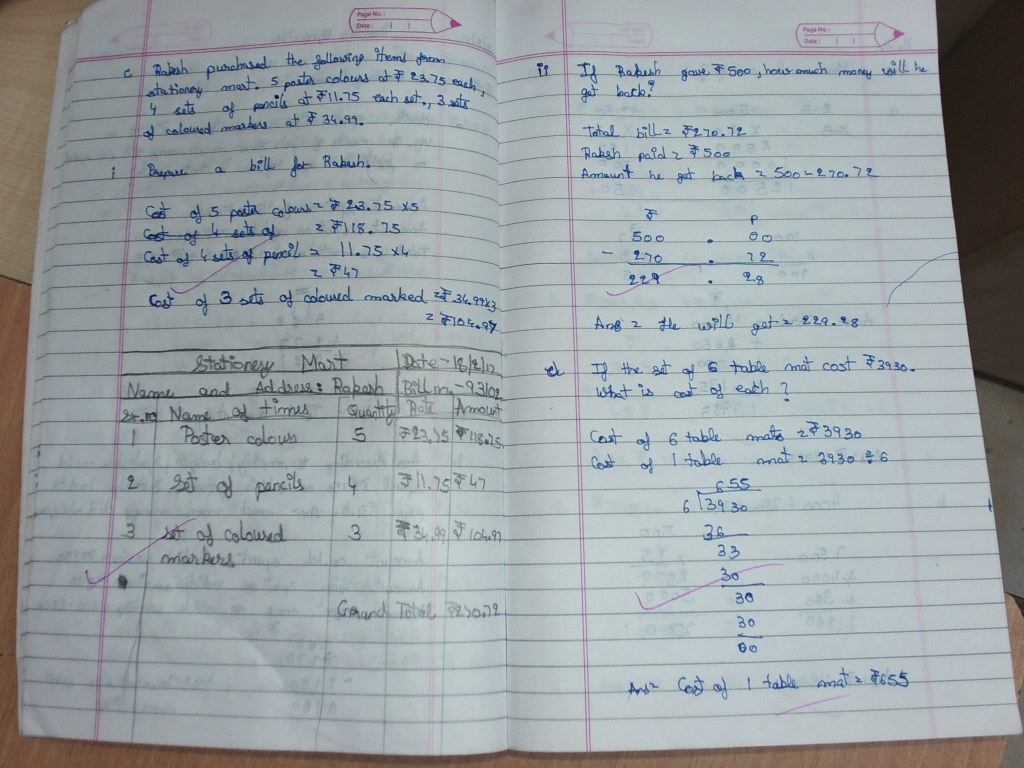 Page No.:
Date:
c Rakesh purchased the following items from
stationery mart. 5 poster colours at ₹ 23.75 each,
4 sets of pencils at ₹11.75 each set., 3 sets
of coloured markers at ₹ 34.99.
i Prepare a bill for Rakesh.
Cost of 5 poster colours = ₹ 23.75 x5
Cost of 4 sets of = ₹118.75
Cost of 4 sets of pencil = 11.75 x4
= ₹47
Cost of 3 sets of coloured marked = ₹34.99x3
= ₹104.97
Stationery Mart Date -
Name and Address: Rakesh Bill no. - 93102
Sr.no Name of times Quantity Rate Amount
1 Poster colours 5 ₹23.75 ₹118.75
2 set of pencils 4 ₹11.75 ₹47
3 set of coloured 3 ₹34.99 ₹104.97
markers
Grand Total ₹270.72
Page No.:
Date:
ii If Rakesh gave ₹500, how much money will he
get back?
Total bill = ₹270.72
Rakesh paid = ₹500
Amount he got back = 500-270.72
₹ P
500 . 00
- 270 . 72
229 . 28
Ans = He will get = 229.28
d If the set of 6 table mat cost ₹3930.
What is cost of each?
Cost of 6 table mats = ₹3930
Cost of 1 table mat = 3930 ÷ 6
655
6 3930
36
33
30
30
30
00
Ans = Cost of 1 table mat = ₹655